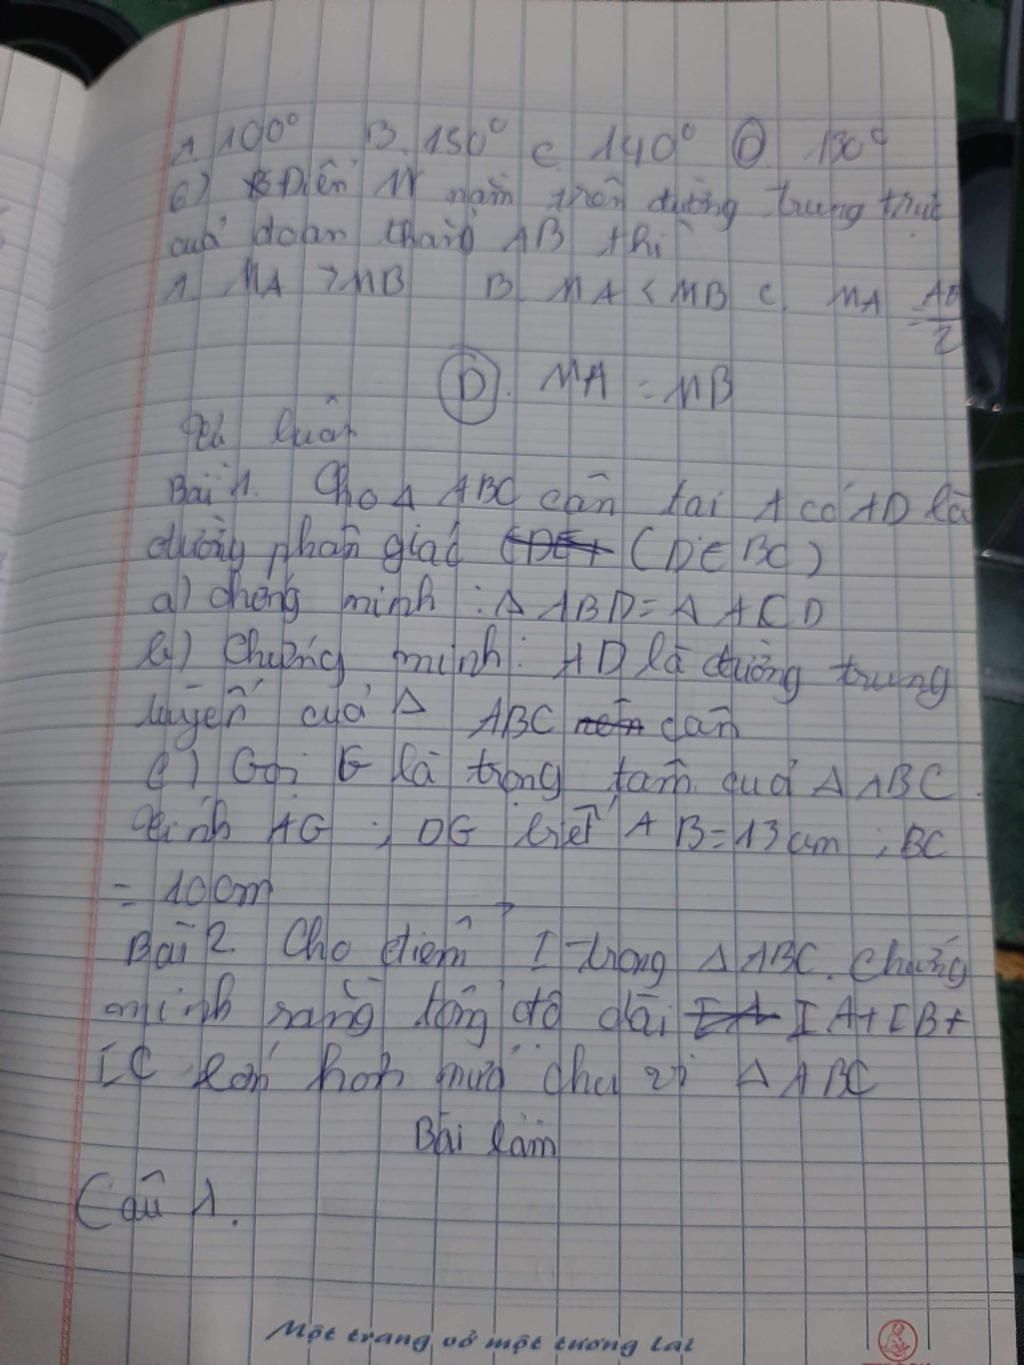 A 100° B. 150° C 140° D 130°
6) Điển M nằm trên đường trung trực
của đoạn thẳng AB thì
A. MA > MB B MA < MB C. MA = AB/2
D. MA = MB
Tự luận
Bài 1. Cho Δ ABC cân tại A có AD là
đường phân giác (D∈ BC)
a) chứng minh : Δ ABD = Δ ACD
b) Chứng minh: AD là đường trung
tuyến của Δ ABC cân
c) Gọi G là trọng tâm của Δ ABC.
tính AG ; DG biết A B = 13 cm ; BC
= 10 cm
Bài 2. Cho điểm I trong Δ ABC. Chứng
minh rằng tổng độ dài I A + I B +
I C lớn hơn nửa chu vi Δ ABC
Bài làm
Câu 1.
Một trang vở một tương lai